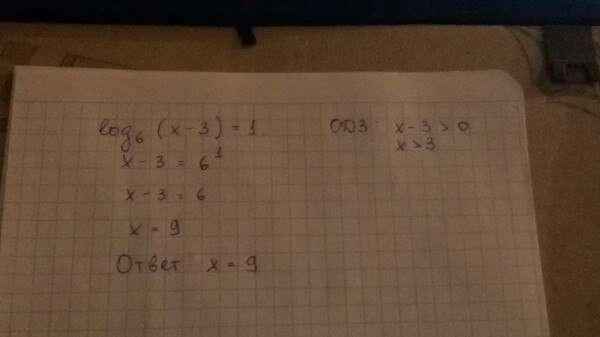 log₆ (x-3) = 1
x-3 = 6¹
x-3 = 6
x = 9
Ответ x = 9
ОДЗ: x-3 > 0
x > 3